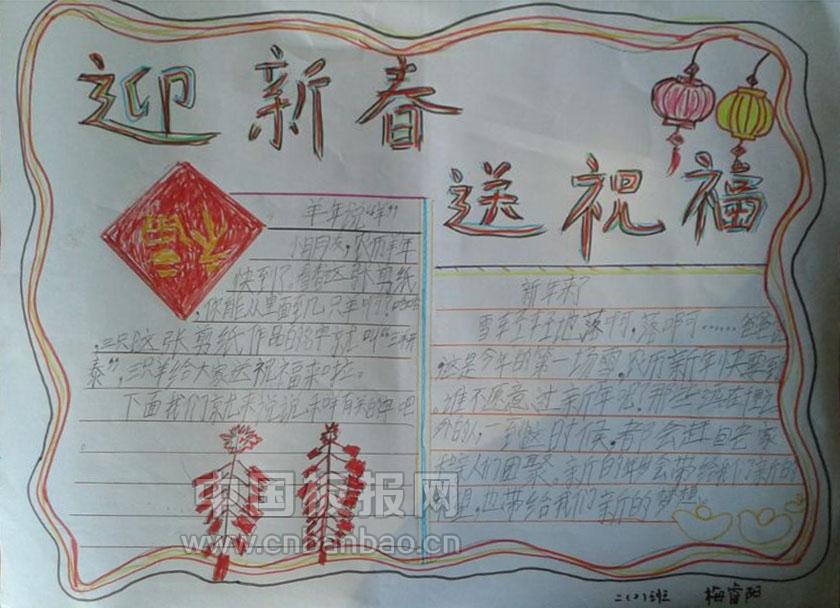 迎新春
送祝福
福
羊年说“羊”
小朋友，农历羊年
快到了，看看这张剪纸
，你能从里面到几只羊啊？
三只，这张剪纸作品的名字就叫“三羊开
泰”，三只羊给大家送祝福来啦。
下面我们就来说说和羊有关的吧
新年来了
雪轻轻地落啊，落啊……爸爸说
这是今年的第一场雪，农历新年快要到
，谁不愿意过新年呢？那些远在
外的人，一到这时候，都会赶回老家
人们团聚。新的会带给我们新的
，也带给我们新的梦想。
中国板报网
www.cnbanbao.cn
二(2)班 梅睿阳